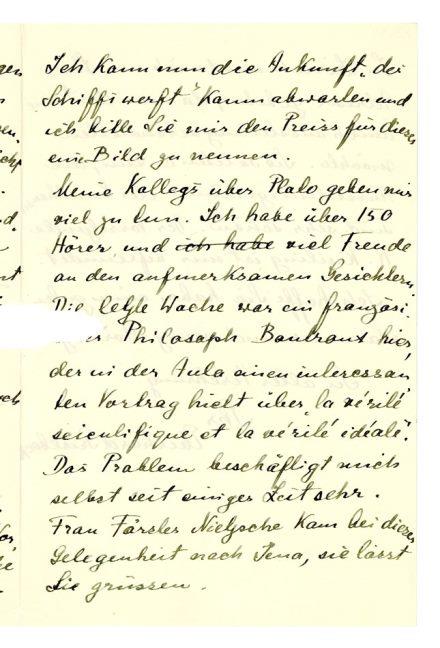 Ich kann nun die Ankunft „des
Schiffswerft“ kaum abwarten und
ich bitte Sie mir den Preiss für dieses
eine Bild zu nennen.
Meine Kollegs über Plato geben mir
viel zu tun. Ich habe über 150
Hörer und ich habe viel Freude
an den aufmerksamen Gesichtern.
Die letzte Woche war ein französi-
Philosoph Boutroux hier,
der in der Aula einen interessan
ten Vortrag hielt über „la vérité
scientifique et la vérité idéale“.
Das Problem beschäftigt mich
selbst seit einiger Zeit sehr.
Frau Förster Nietzsche kam bei dieser
Gelegenheit nach Jena, sie lässt
Sie grüssen.